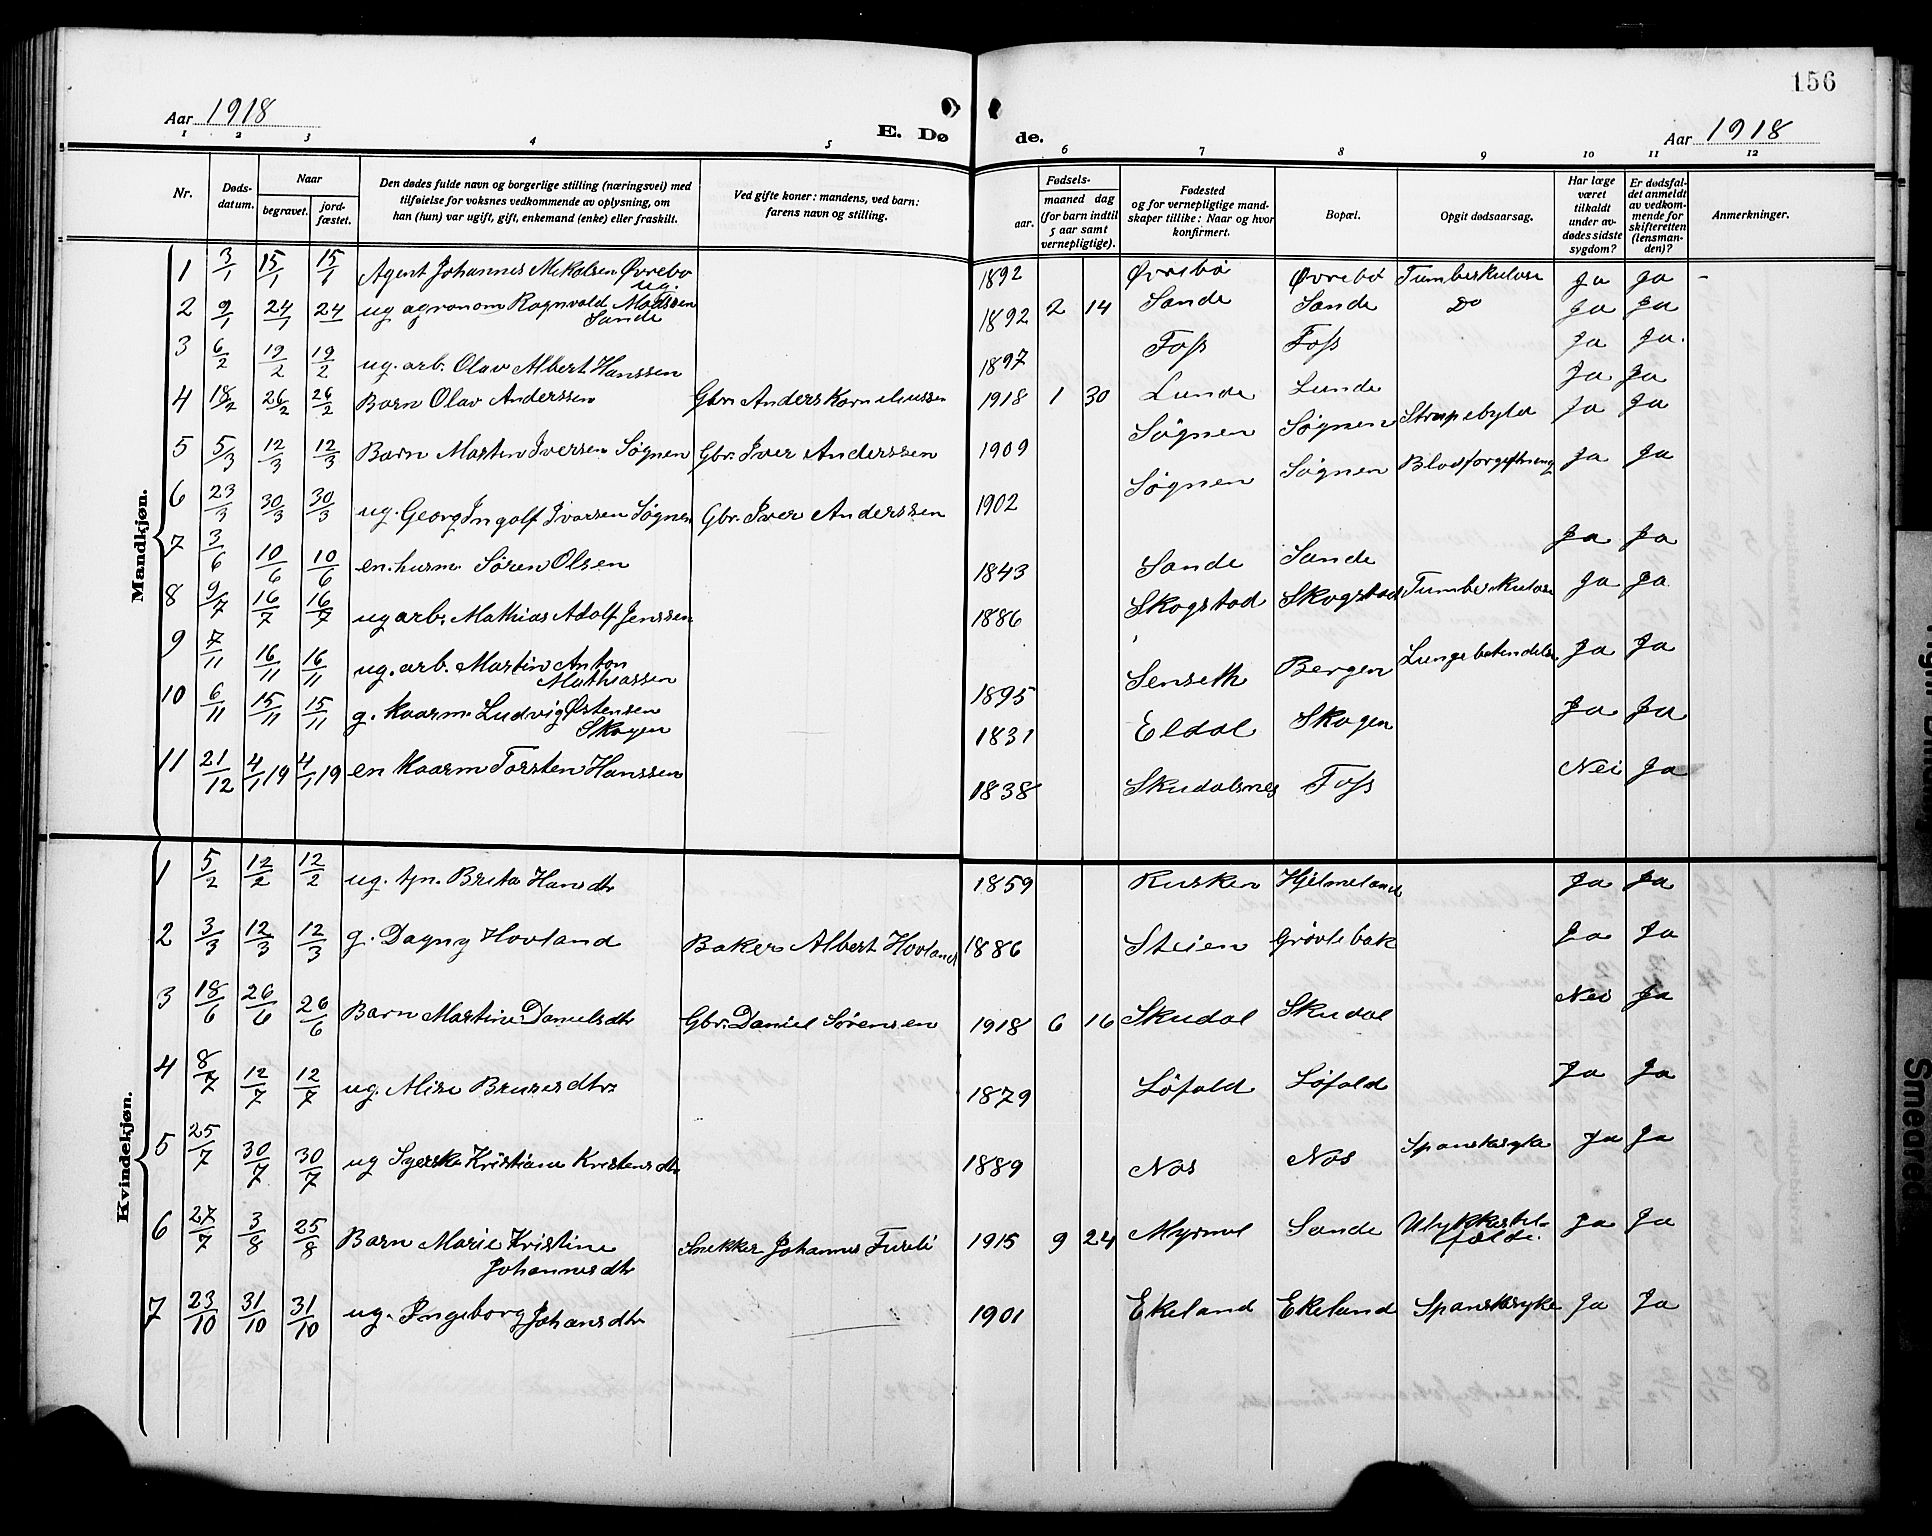 156
Aar 1918
E. Dø de.
Aar 1918
1 2 3 4 5 6 7 8 9 10 11 12
Nr.
Døds-
datum.
Naar
begravet.
jord-
fæstet.
Den dødes fulde navn og borgerlige stilling (næringsvei) med
tilføielse for voksnes vedkommende av oplysning, om
han (hun) var ugift, gift, enkemand (enke) eller fraskilt.
Ved gifte koner: mandens, ved barn:
farens navn og stilling.
Fødsels-
aar.
maaned dag
(for barn indtil
5 aar samt
vernepligtige).
Fødested
og for vernepligtige mand-
skaper tillike: Naar og hvor
konfirmert.
Bopæl.
Opgit dødsaarsag.
Har læge
været
tilkaldt
under av-
dødes sidste
sygdom?
Er dødsfal-
det anmeldt
av vedkom-
mende for
skifteretten
(lensman-
den)?
Anmerkninger.
Mandkjøn.
1 3/1 15/1 15/1 Agent Johannes Mikalsen Øvrebø 1892 Øvrebø Øvrebø Tumberkulose Ja Ja -
ug.
2 9/1 24/1 24 ug agronom Ragnvald Madssen 1892 2 14 Sande Sande Do Ja Ja
Sande
3 6/2 19/2 19/2 ug. arb. Olav Albert Hanssen 1897 Foss Foss Ja Ja.
4 18/2 26/2 26/2 Barn Olav Anderssen Gbr. Anders Korneliussen 1918 1 30 Lunde Lunde Ja Ja
5 5/3 12/3 12/3 Barn Martin Iversen Søgnen Gbr. Iver Anderssen 1909 Søgnen Søgnen Strupebyld Ja Ja
6 23/3 30/3 30/3 ug. Georg Ingolf Ivarsen Søgnen Gbr. Iver Anderssen 1902 Søgnen Søgnen Blodforgiftning Ja Ja
7 3/6 10/6 10/6 en. husm. Søren Olsen 1843 Sande Sande Ja Ja
8 9/7 16/7 16/7 ug arb. Mathias Adolf Jenssen 1886 Skogstad Skogstad Tumberkulose Ja Ja
9 7/11 16/11 16/11 ug. arb. Martin Anton 1895 Senseth Bergen Lungebetendelse Ja Ja
Mathiassen
10 6/11 15/11 15/11 g. kaarm. Ludvig Østensen 1831 Eldal Skogen Ja Ja
Skogen
11 21/12 4/1 19 4/1 19 en kaarm Torsten Hanssen 1838 Skudalsnes Foss Nei Ja
Kvindekjøn.
1 5/2 12/2 12/2 ug. tjn. Brita Hansdtr 1859 Rusken Hjelmeland Ja Ja
2 3/3 12/3 12/3 g. Dagny Hovland Baker Albert Hovland 1886 Steien Grøvlebak Ja Ja
3 18/6 26/6 26/6 Barn Martine Danielsdtr Gbr. Daniel Sørensen 1918 6 16 Skudal Skudal Nei Ja
4 8/7 12/7 12/7 ug. Alise Brunesdtr 1879 Løfald Løfald Ja Ja
5 25/7 30/7 30/7 ug Syerske Kristiane Kristensdtr 1889 Nos Nos Spanskesyke Ja Ja
6 27/7 3/8 25/8 Barn Marie Kristine Snekker Johannes Fureli 1915 9 24 Myrmel Sande Ulykkestil- Ja Ja
Johannesdtr fælde.
7 23/10 31/10 31/10 ug. Ingeborg Johansdtr 1901 Ekeland Ekeland Spanskesyke Ja Ja